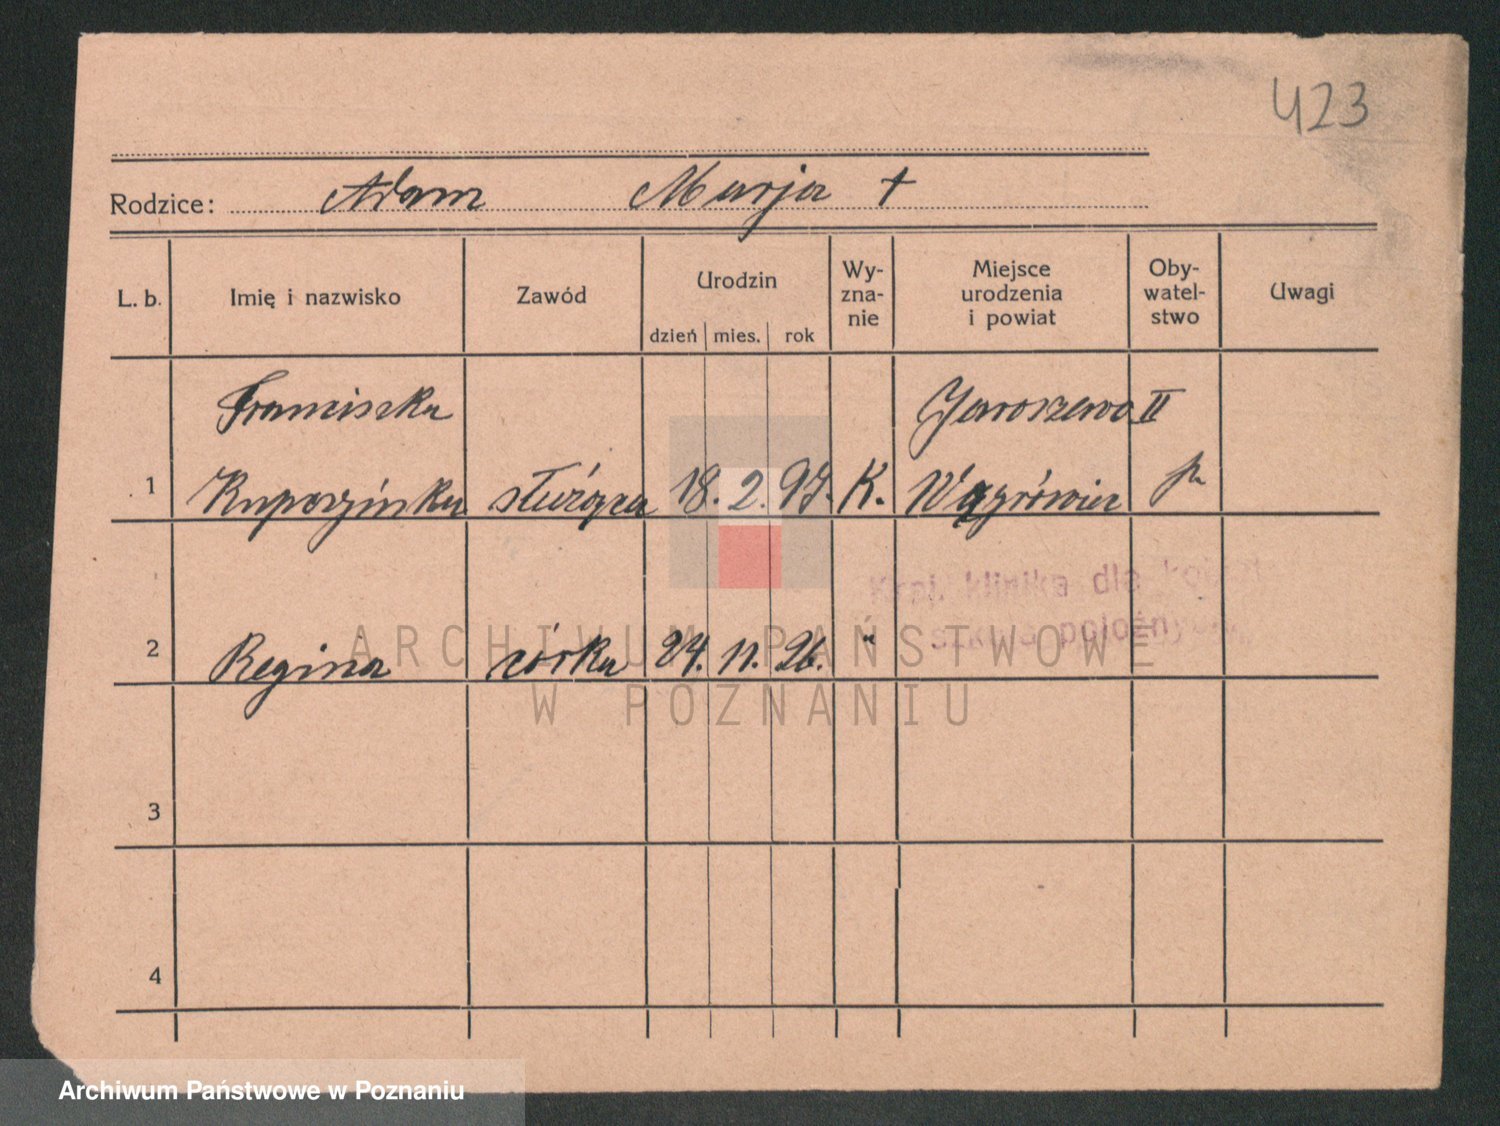 423
Rodzice: Adam Marja †
L. b. Imię i nazwisko Zawód Urodzin dzień mies. rok Wy-zna-nie Miejsce urodzenia i powiat Oby-watel-stwo Uwagi
Franciszka Jaroszewo II
1 służąca 18. 2. K. Wągrówiec p.
Kraj. klinika dla kobiet
szkoła położnych
2 Regina córka 24. 11. 26. "
3
4
ARCHIWUM PAŃSTWOWE
W POZNANIU
Archiwum Państwowe w Poznaniu